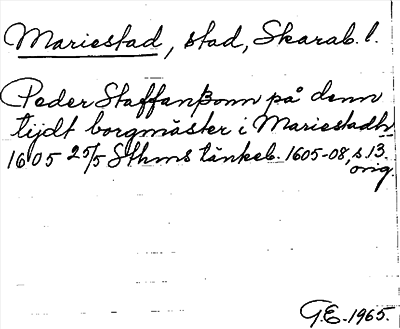 Mariestad, stad, Skarab. l.
Peder Staffanßonn på denn
tijdt borgmäster i Mariestadh
1605 25/5 Sthms tänkeb. 1605-08, s. 13.
orig.
G.E. 1965.